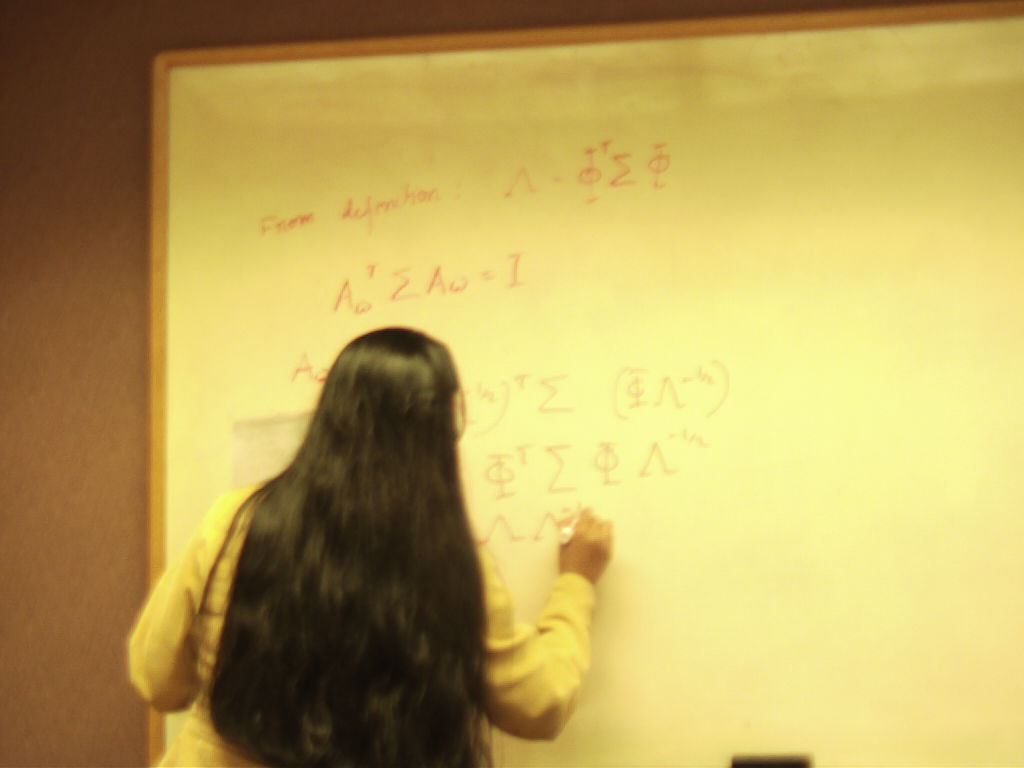 From definition: Λ = Φᵀ Σ Φ
A_ωᵀ Σ A_ω = I
A_ω ⁻¹ᐟ²)ᵀ Σ (Φ Λ⁻¹ᐟ²)
Φᵀ Σ Φ Λ⁻¹ᐟ²
Λ Λ